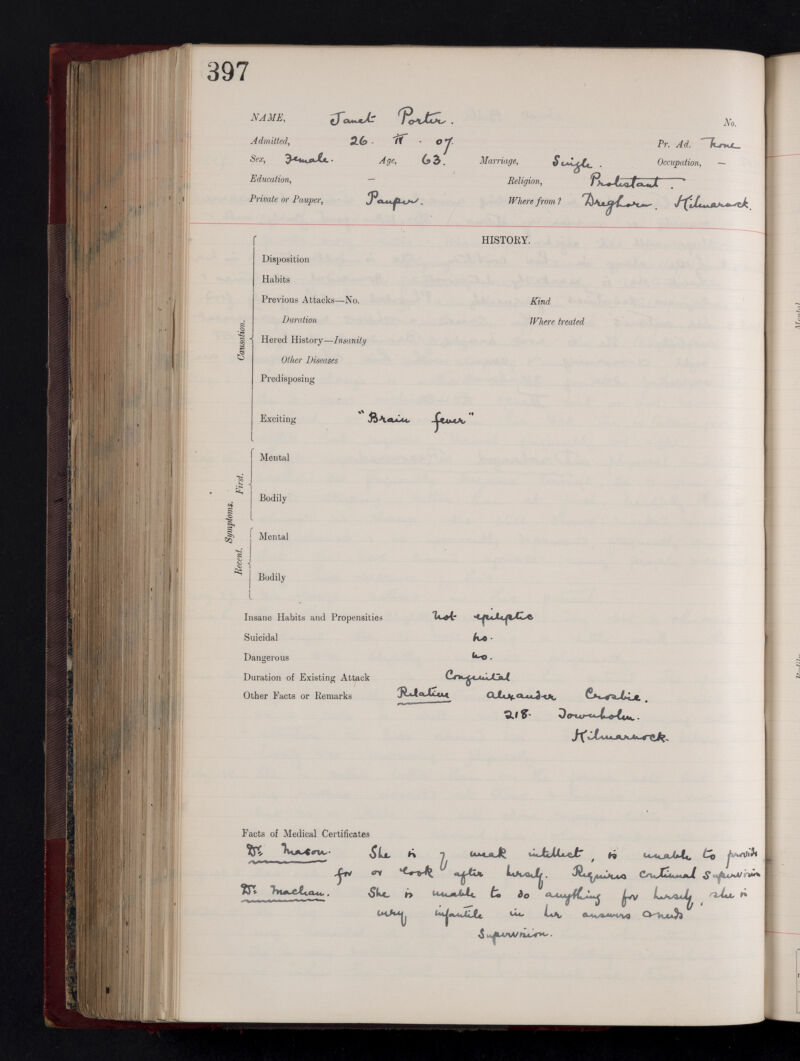 397
NAME, Janet Porter. No.
Admitted, 26 - IV - 07. Pr. Ad. None
Sex, Female. Age, 63. Marriage, Single. Occupation, —
Education, — Religion, Protestant.
Private or Pauper, Pauper. Where from? Dreghorn. Kilmarnock.
HISTORY.
Disposition
Habits
Previous Attacks—No. Kind
Duration Where treated
Causation.
Hered History—Insanity
Other Diseases
Predisposing
Exciting "Brain fever"
Symptoms.
First.
Mental
Bodily
Recent.
Mental
Bodily
Insane Habits and Propensities Not epileptic
Suicidal No.
Dangerous No.
Duration of Existing Attack Congenital
Other Facts or Remarks Relative Alexander Crosbie.
218. Townholm.
Kilmarnock.
Facts of Medical Certificates
Dr. Mason. She is of weak intellect, is unable to provide
for or look after herself. Requires continual supervision
Dr. She is unable to do anything for herself, she is
very infantile in her answers & needs
Supervision.